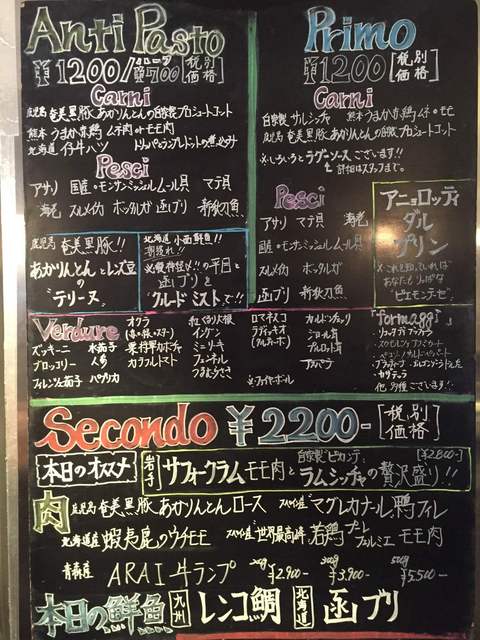 Anti Pasto
¥1200/ハーフ¥700 [税別価格]
Carni
鹿児島 奄美黒豚あかりんとんの自家製プロシュートコット
熊本 うまか赤鶏 ムネ肉 or モモ肉
北海道 仔牛ハツ
トリッパとランプレドットの煮込み
Pesci
アサリ 国産・モンサンミッシェルムール貝 マテ貝
海老 スルメイカ ボッタルガ 函ブリ 新秋刀魚
鹿児島 奄美黒豚!!
あかりんとんとレンズ豆
の
"テリーヌ"
北海道 小西鮮魚!!
朝獲れ!!
※神経〆!!の平目と
函ブリを
"クルードミスト"で!!
Primo
¥1200 [税別価格]
Carni
自家製 サルシッチャ 熊本 うまか赤鶏 ムネ or モモ
鹿児島 奄美黒豚 あかりんとんの自家製プロシュートコット
※いろいろとラグーソースございます!!
詳細はスタッフまで。
Pesci
アサリ マテ貝 海老
国産・モンサンミッシェルムール貝
スルメイカ ボッタルガ
函ブリ 新秋刀魚
アニョロッティ
ダル
プリン
※これを知っていれば
あなたもりっぱな
"ピエモンテーゼ"
Verdure
ズッキーニ 水茄子
ブロッコリー 人参
フィレンツェ茄子 パプリカ
オクラ
(赤・緑・スター)
栗将軍カボチャ
カラフルトマト
紅くるり大根
インゲン
ミニリーキ
フェンネル
つるむらさき
ロマネスコ
ラディッキオ
(タルティーボ)
※ファイヤーボール
カルドンチェッリ
ジロール茸
プルロット茸
アスパラ
「Formaggi」
カステラ
他 多種ございます!!
Secondo ¥2200- [税別価格]
本日のオススメ
岩手 サフォークラム モモ肉と 自家製"ピカンテ" ラムシッチャの贅沢盛り!! [¥2800-]
肉 鹿児島 奄美黒豚 あかりんとんロース スペイン産 マグレカナール 鴨フィレ
北海道産 蝦夷鹿のウチモモ スペイン産"世界最高峰" 若鶏プーレ フェルミエ モモ肉
青森産 ARAI牛ランプ 200g ¥2,900- 300g ¥3,900- 500g ¥5,500-
本日の鮮魚 九州 レンコ鯛 北海道 函ブリ